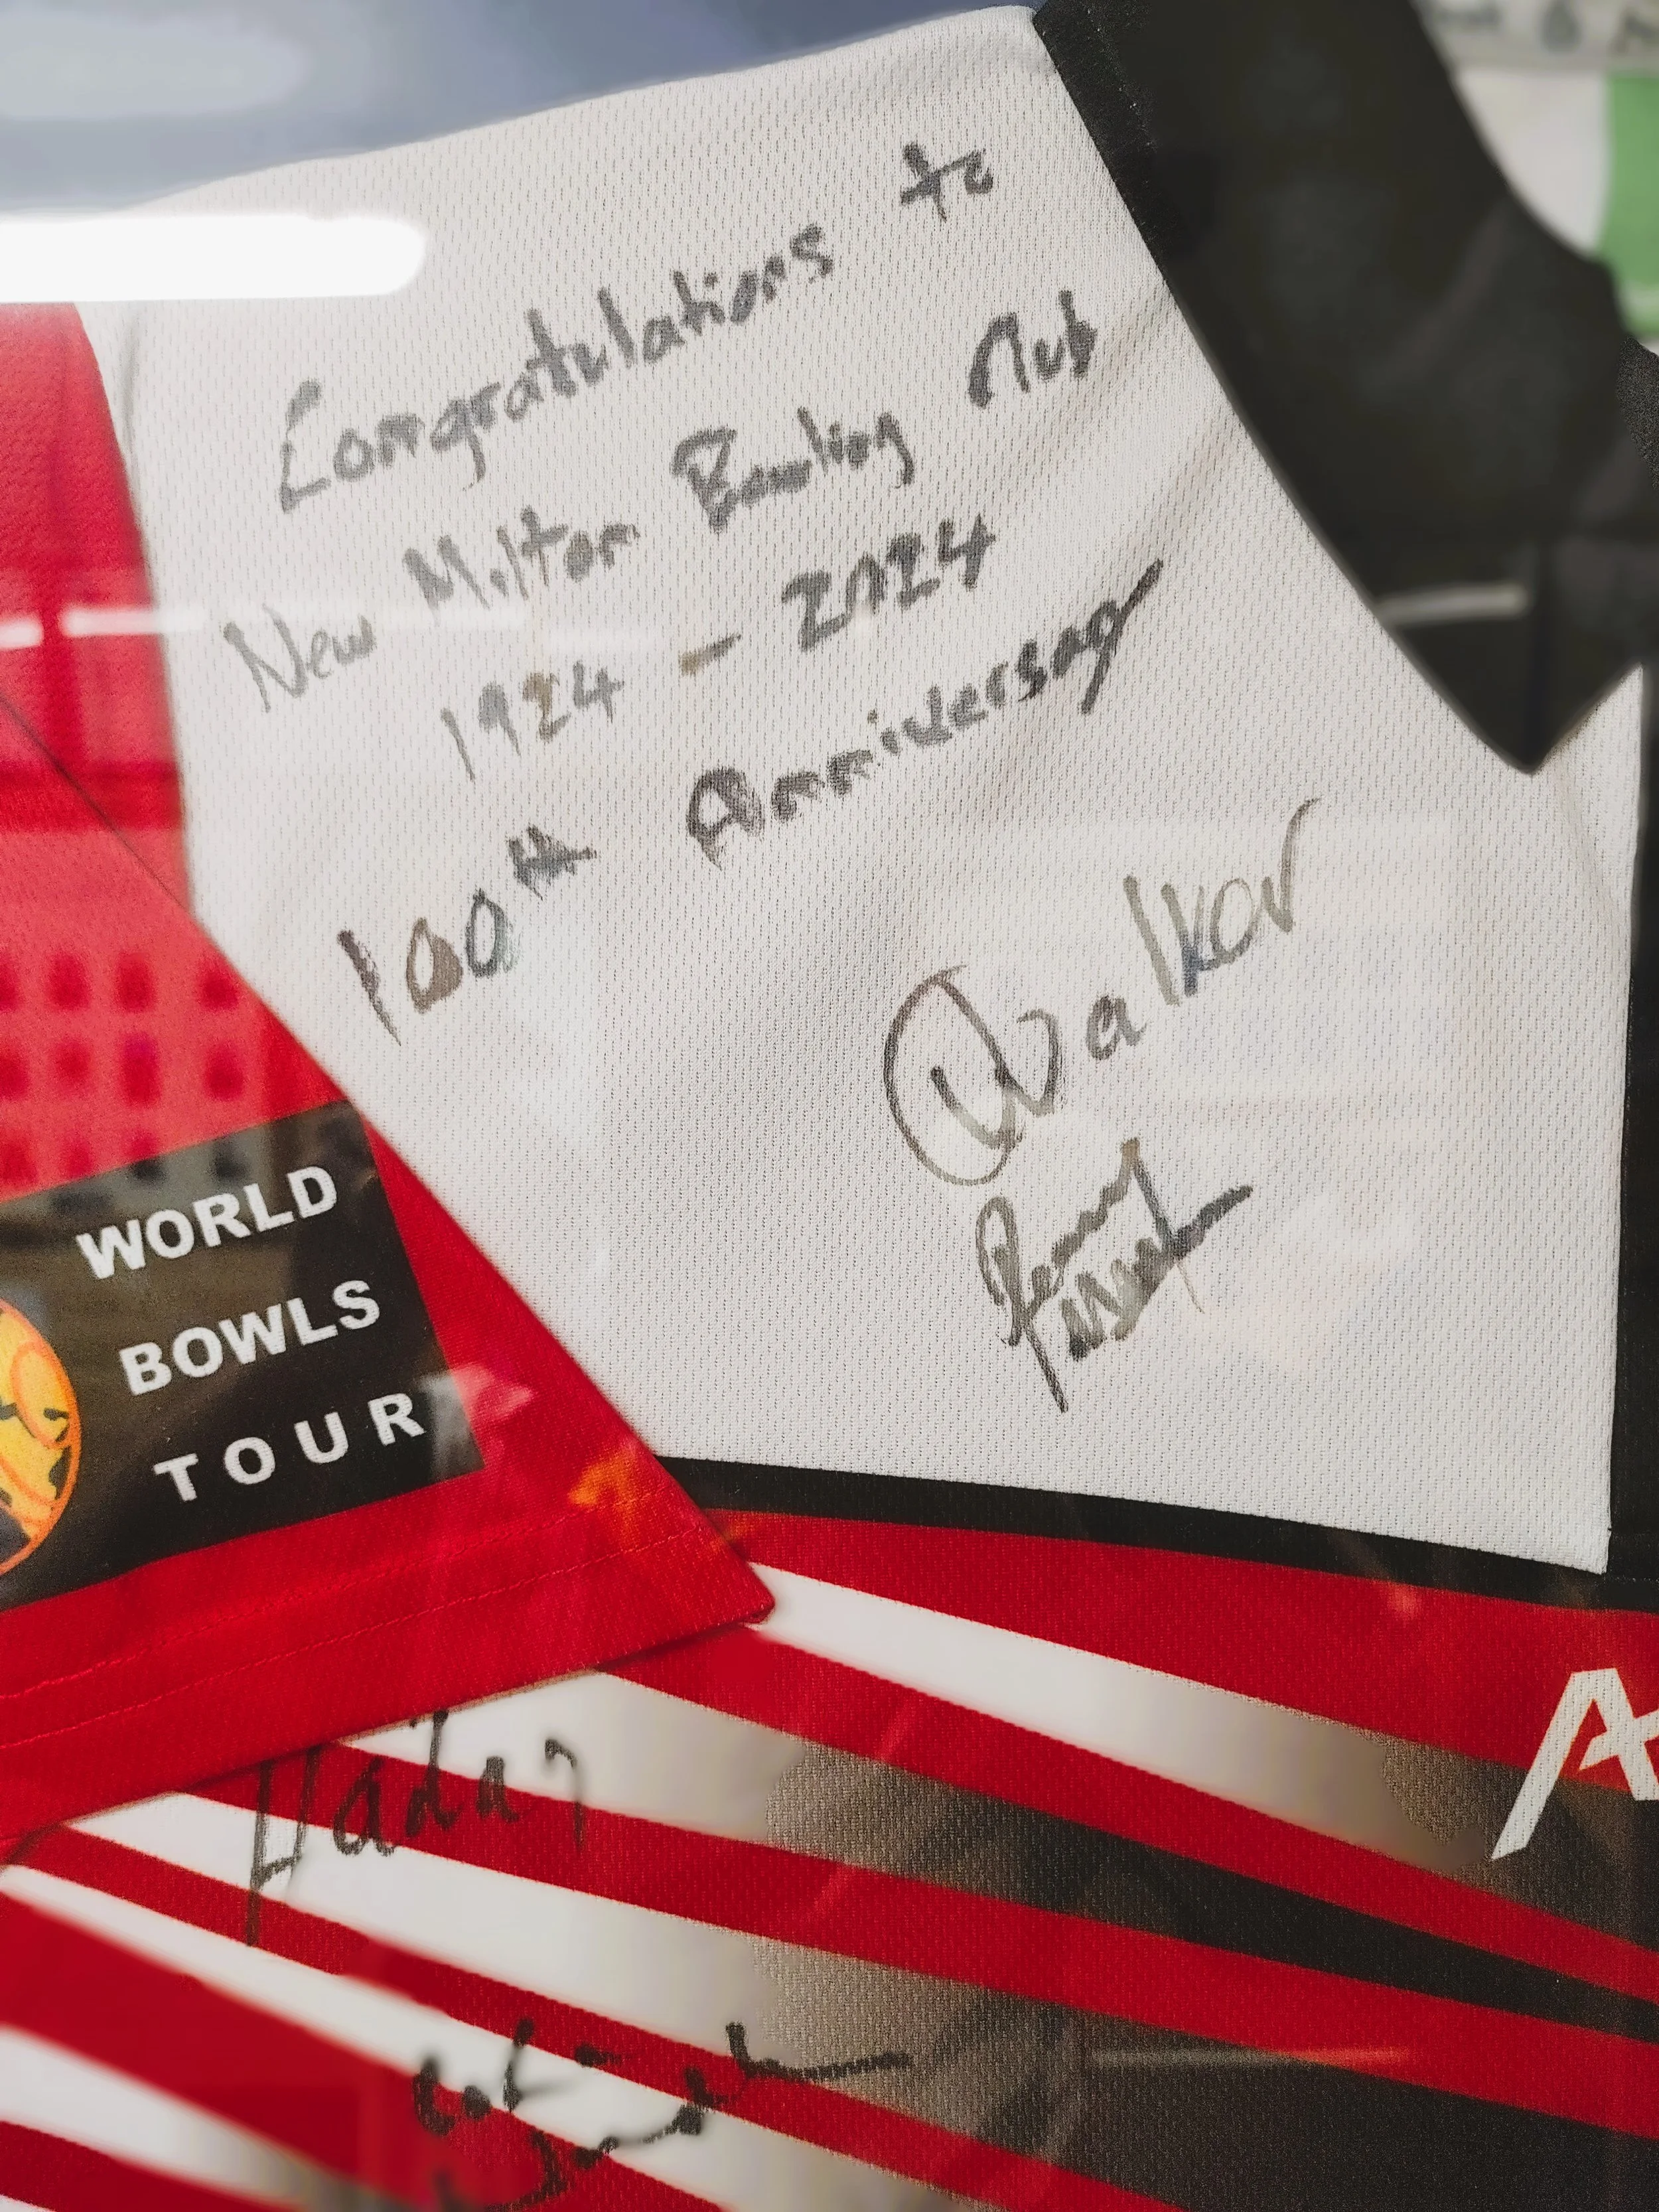 Congratulations to
New Milton Bowling Club
1924 - 2024
100th Anniversary
Walker
WORLD
BOWLS
TOUR